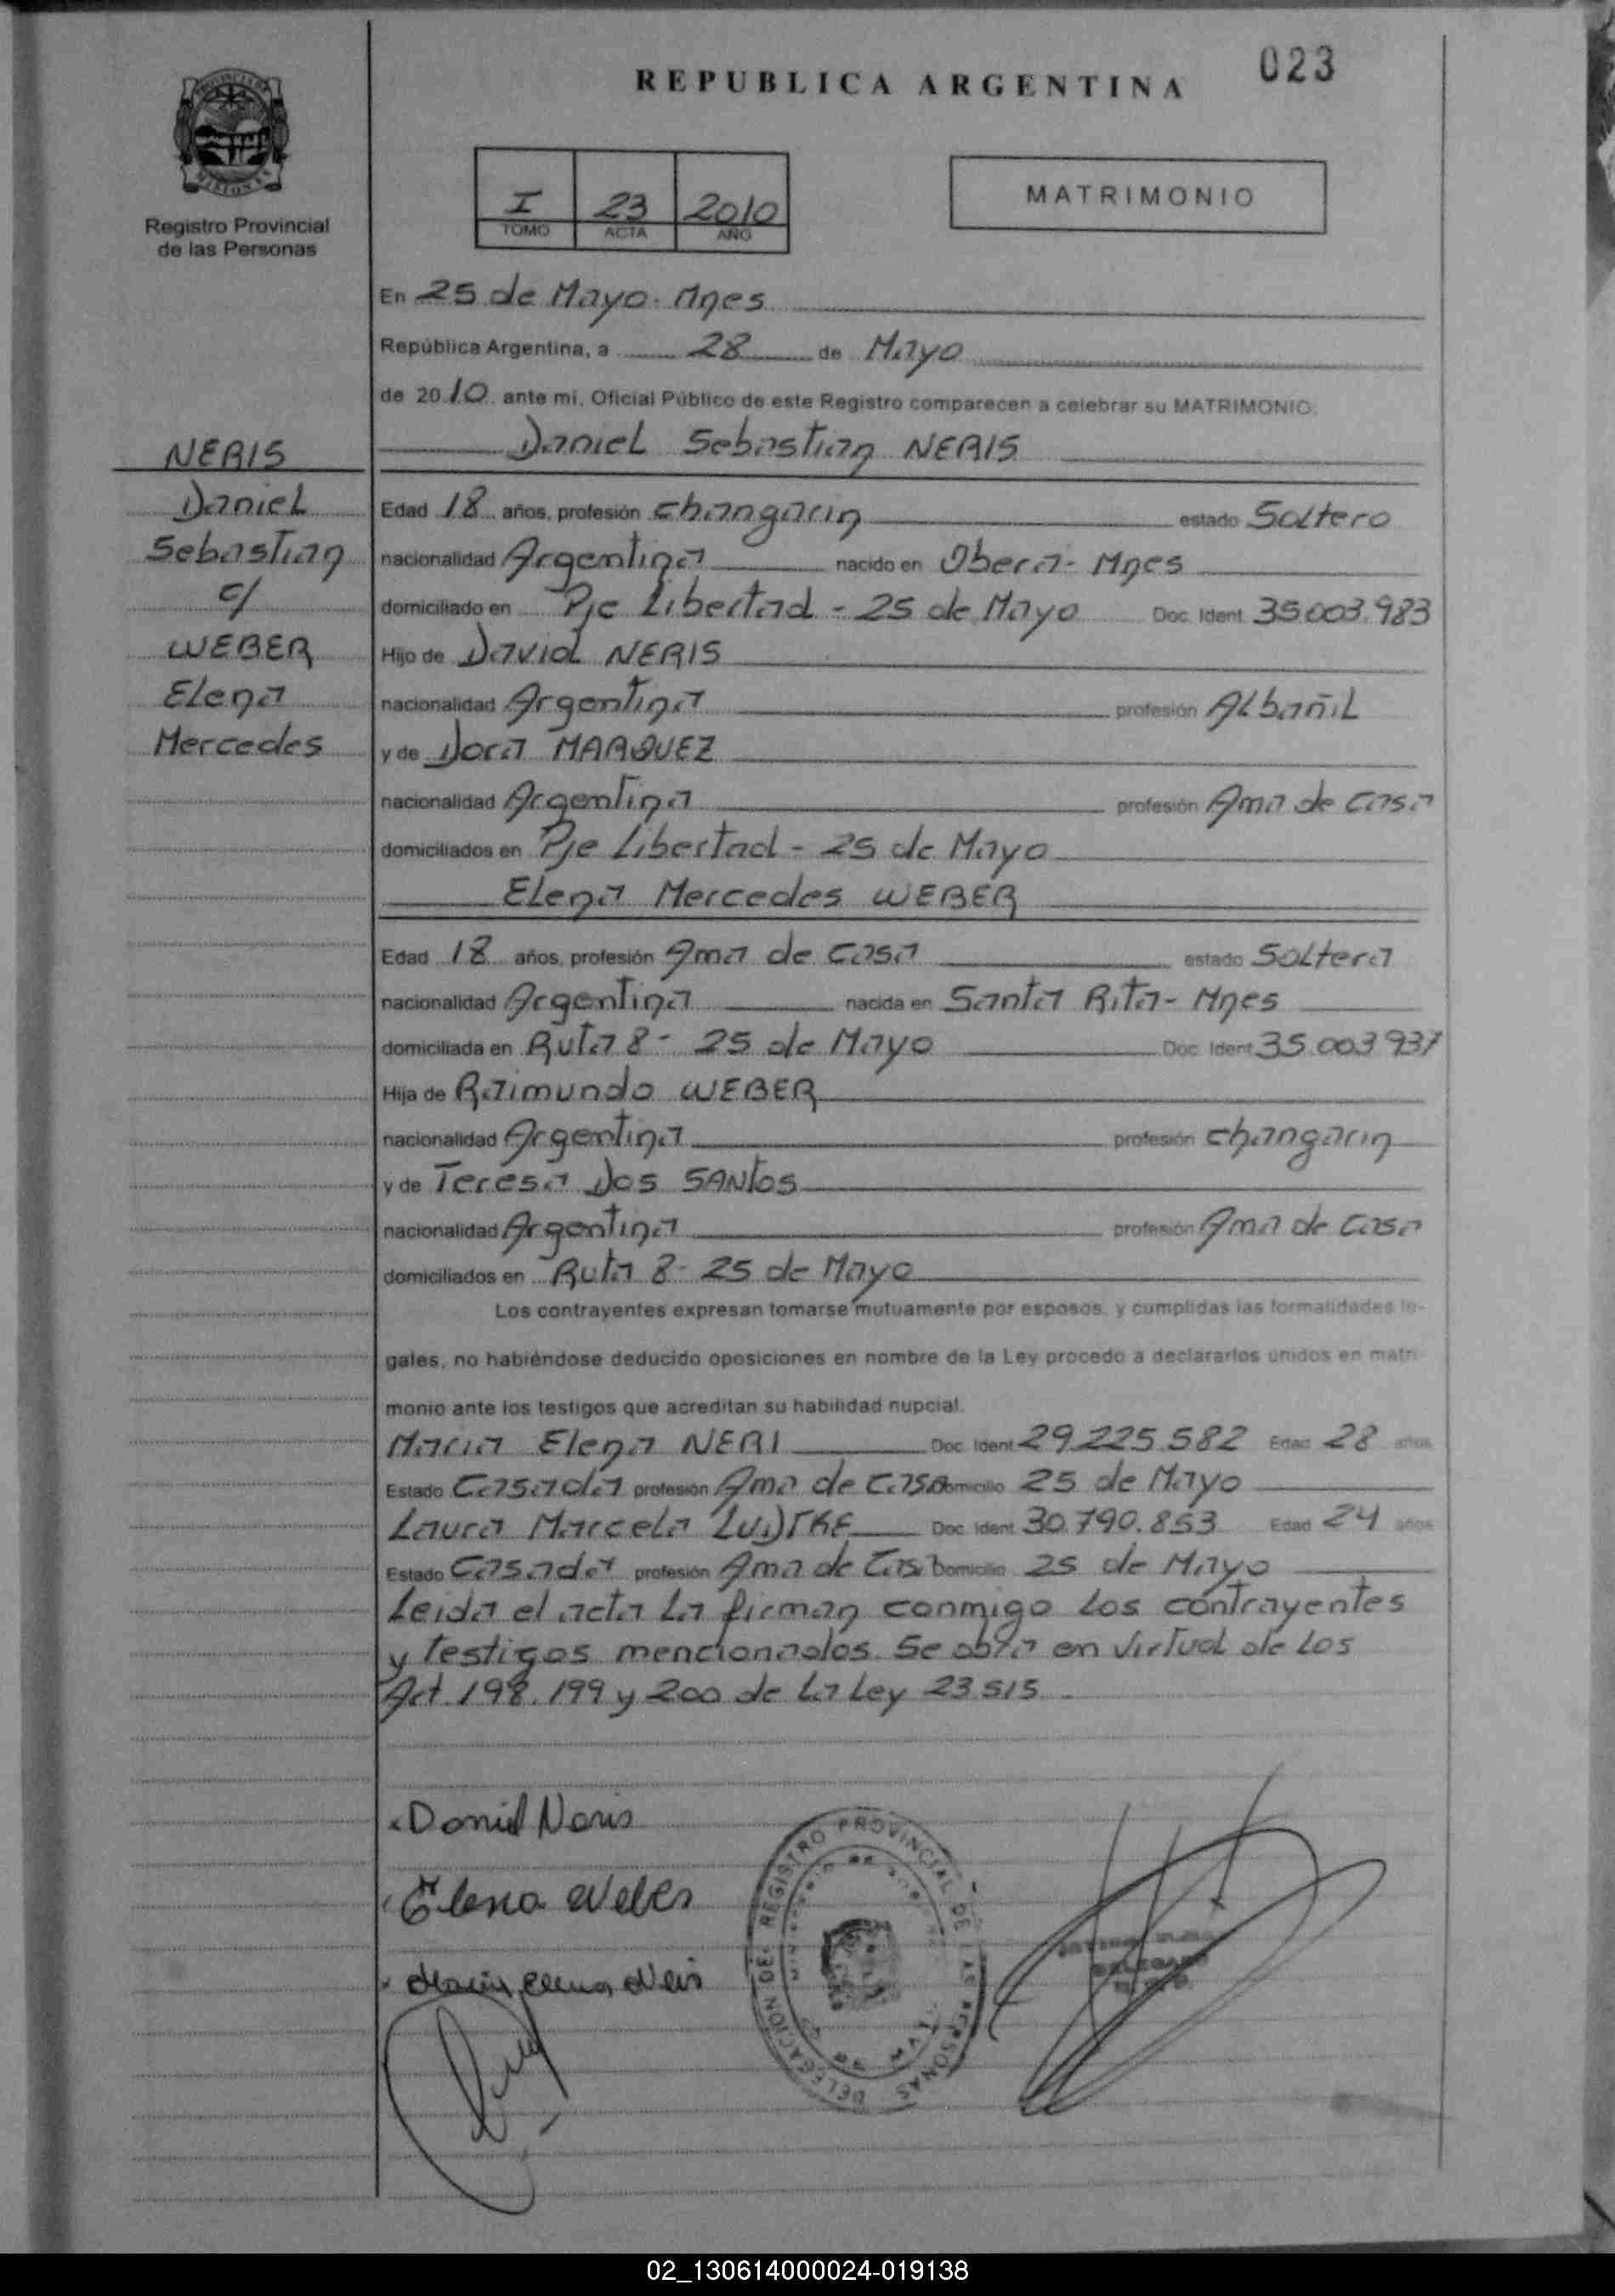 023
REPUBLICA ARGENTINA
MISIONES
Registro Provincial
de las Personas
I 23 2010
TOMO ACTA AÑO
MATRIMONIO
En 25 de Mayo - Mnes
República Argentina, a 28 de Mayo
de 2010 ante mi, Oficial Público de este Registro comparecen a celebrar su MATRIMONIO.
NERIS
Daniel
Sebastian
c/
WEBER
Elena
Mercedes
Daniel Sebastian NERIS
Edad 18 años, profesión changarin estado Soltero
nacionalidad Argentina nacido en Oberá - Mnes
domiciliado en Pje Libertad - 25 de Mayo Doc. Ident. 35.003.983
Hijo de David NERIS
nacionalidad Argentina profesión Albañil
y de Dora MARQUEZ
nacionalidad Argentina profesión Ama de casa
domiciliados en Pje Libertad - 25 de Mayo
Elena Mercedes WEBER
Edad 18 años, profesión Ama de casa estado Soltera
nacionalidad Argentina nacida en Santa Rita - Mnes
domiciliada en Ruta 8 - 25 de Mayo Doc. Ident. 35.003937
Hija de Raimundo WEBER
nacionalidad Argentina profesión changarin
y de Teresa Dos SANtos
nacionalidad Argentina profesión Ama de casa
domiciliados en Ruta 8 - 25 de Mayo
Los contrayentes expresan tomarse mutuamente por esposos, y cumplidas las formalidades le-
gales, no habiéndose deducido oposiciones en nombre de la Ley procedo a declararlos unidos en matri-
monio ante los testigos que acreditan su habilidad nupcial.
Maria Elena NERI Doc. Ident. 29.225.582 Edad 28 años
Estado Casada profesión Ama de Casa Domicilio 25 de Mayo
Laura Marcela Doc. Ident. 30.790.853 Edad 24 años
Estado Casada profesión Ama de Casa Domicilio 25 de Mayo
Leida el acta la firman conmigo los contrayentes
y testigos mencionados. Se en virtud de los
Art. 198. 199 y 200 de la Ley 23.515
Daniel Neris
Elena Weber
DELEGACION DEL REGISTRO PROVINCIAL DE LAS PERSONAS
DELEGADO
02_130614000024-019138